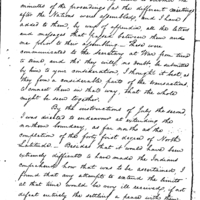 minutes of the proceedings at the different meetings
after the Nations were assembled, and I have
added to them, by way of appendix, all the letters
and messages that passed between them and
me prior to their assembling — These were
communicated to the Secretary at War from time
to time and this they will, no doubt be submitted
by him to your consideration. I thought it best as
they form a considerable part of the transaction
to connect them in that way, that the whole
might be seen together.
By the instructions of July the second
I was directed to endeavour at extending the
northern boundary, as far north as the
completion of the forty first degree of North
Latitude — Besides that it would have been
extremely difficult to have made the Indians
comprehend how that was to be ascertained, I
found that any attempts to extend the limits
at that time would be very ill received, if not
defeat entirely the settling a peace with them